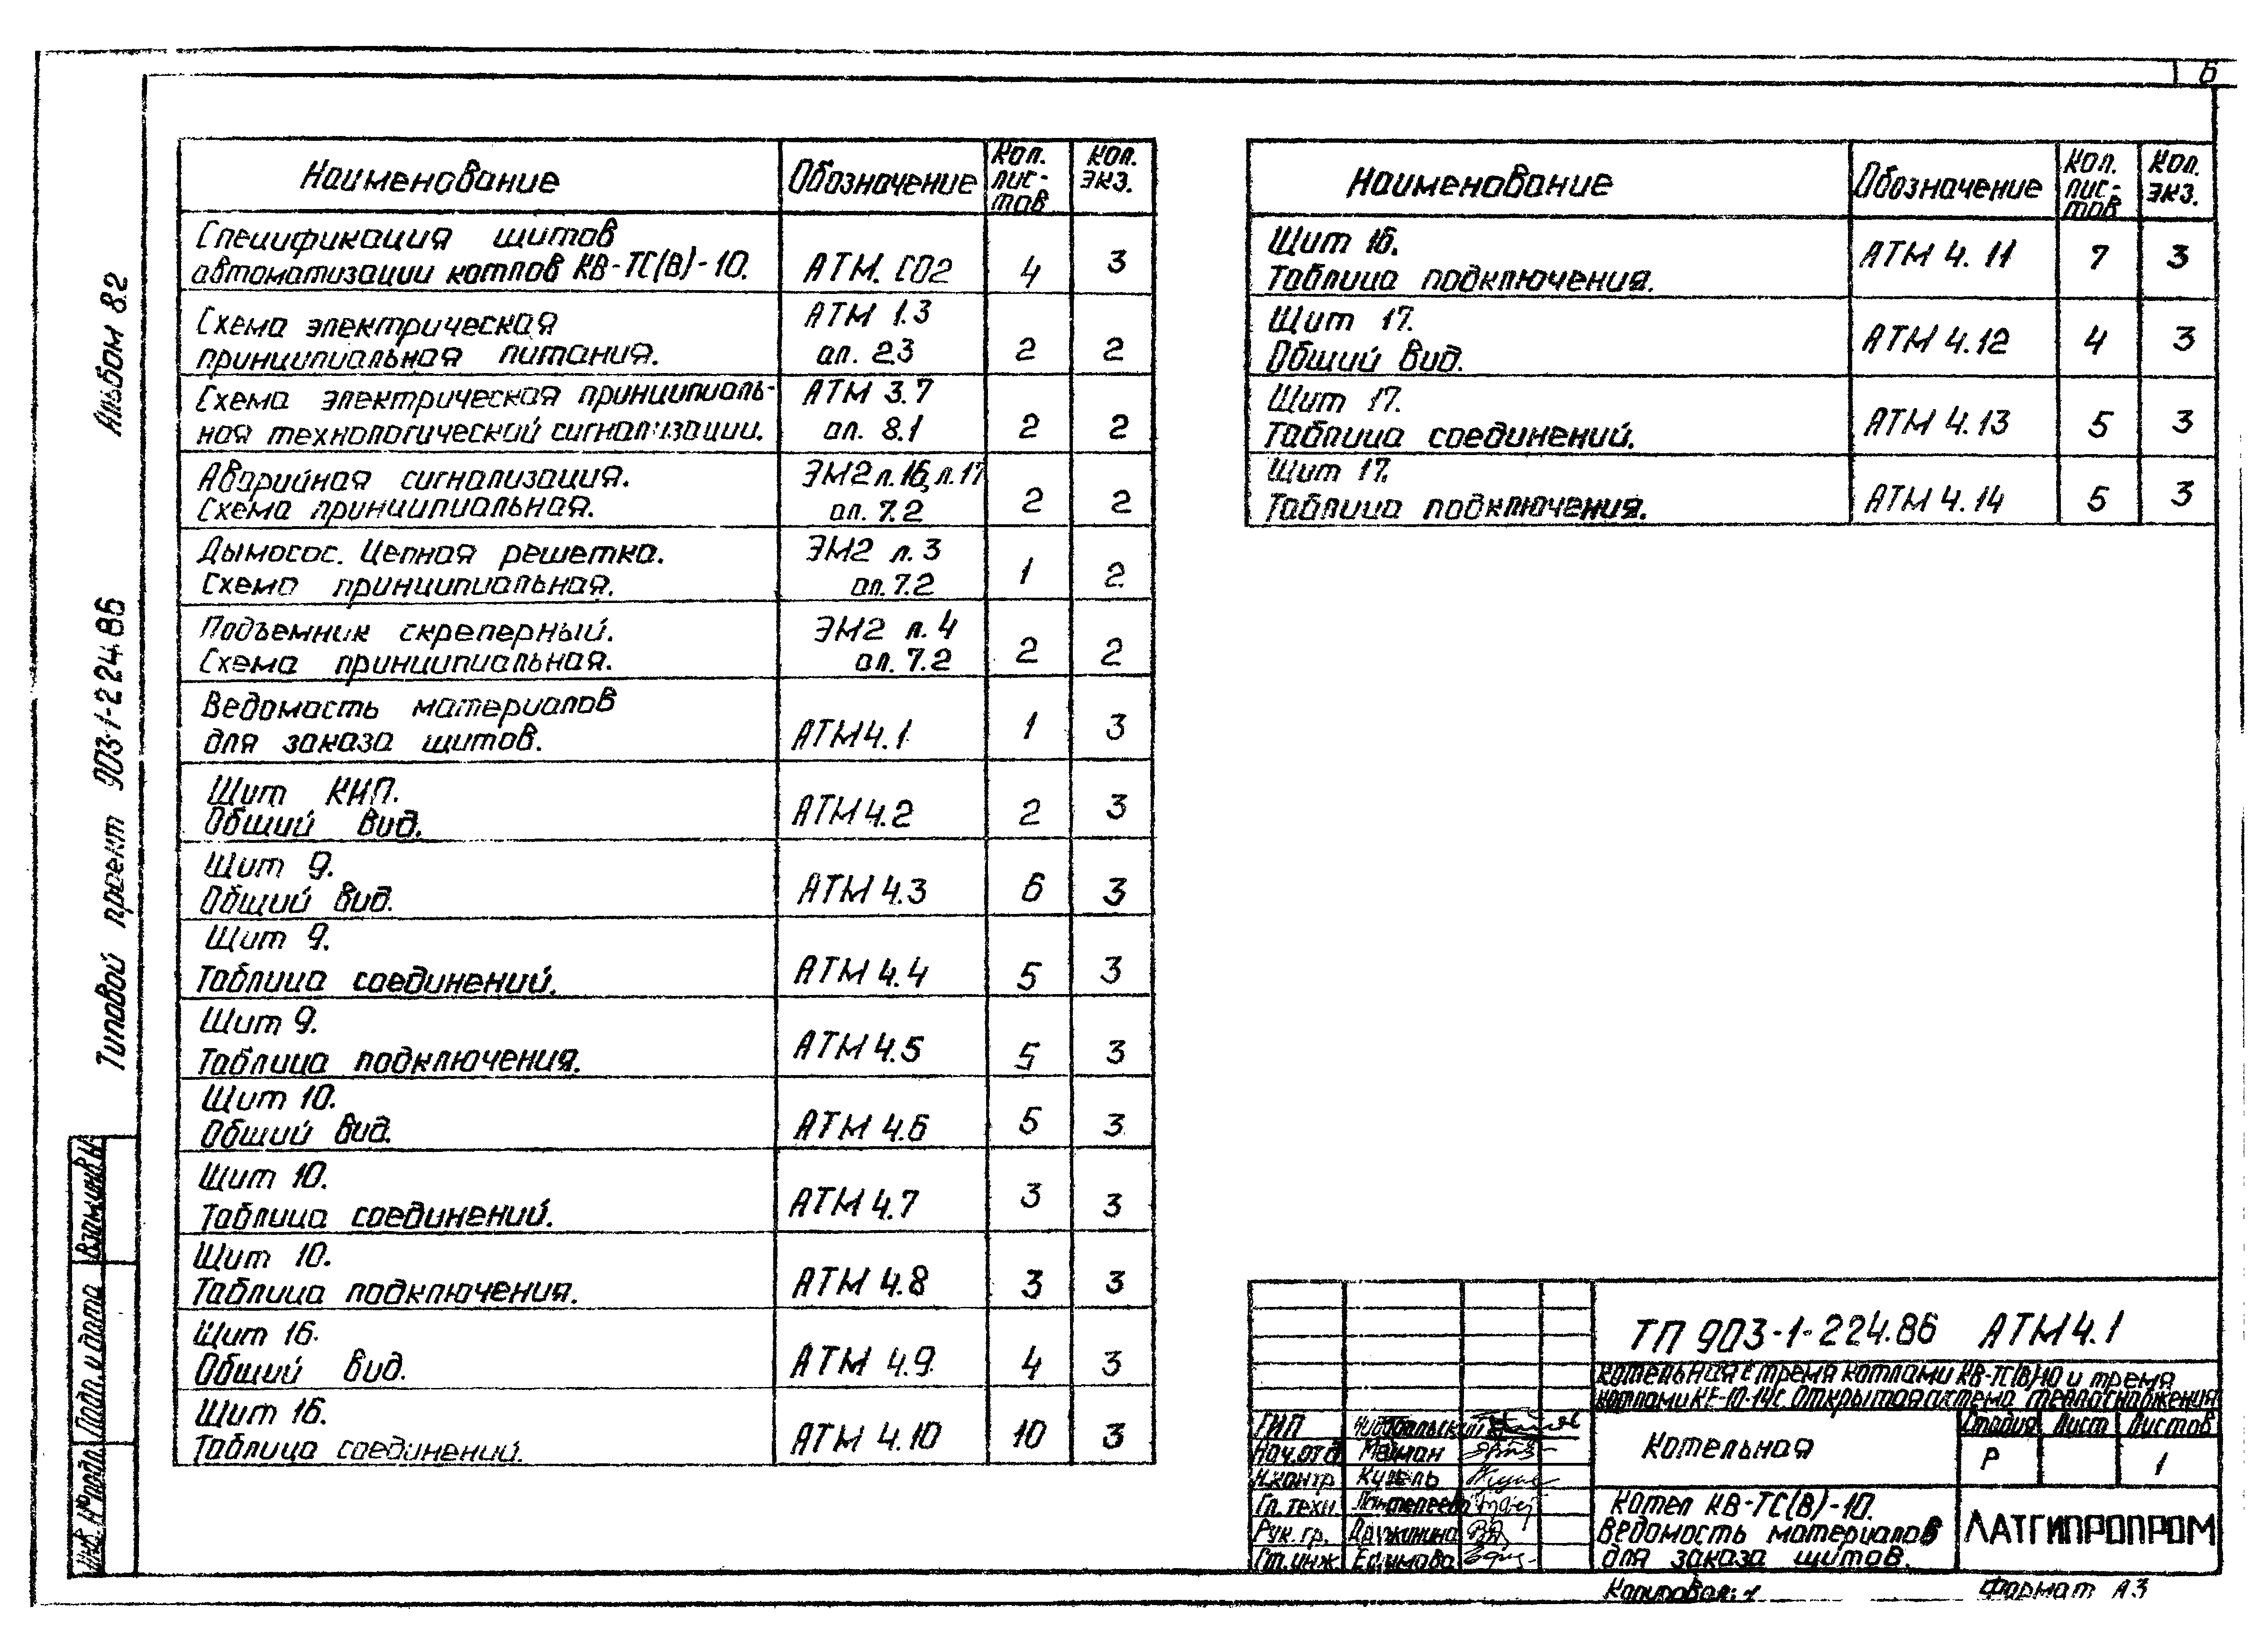 6
Альбом 8.2
Типовой проект 903-1-224.86
Взам.инв.№
Подп. и дата
Инв. № подл.
Наименование Обозначение Кол. лис-тов Кол. экз.
Спецификация щитов
автоматизации котлов КВ-ТС(В)-10. АТМ. СО2 4 3
Схема электрическая АТМ 1.3
принципиальная питания. ал. 2.3 2 2
Схема электрическая принципиаль- АТМ 3.7
ная технологической сигнализации. ал. 8.1 2 2
Аварийная сигнализация. ЭМ2 л.16, л.17
Схема принципиальная. ал. 7.2 2 2
Дымосос. Цепная решетка. ЭМ2 л. 3
Схема принципиальная. ал. 7.2 1 2
Подъемник скреперный. ЭМ2 л. 4
Схема принципиальная. ал. 7.2 2 2
Ведомость материалов
для заказа щитов. АТМ 4.1 1 3
Щит КИП.
Общий вид. АТМ 4.2 2 3
Щит 9.
Общий вид. АТМ 4.3 6 3
Щит 9.
Таблица соединений. АТМ 4.4 5 3
Щит 9.
Таблица подключения. АТМ 4.5 5 3
Щит 10.
Общий вид. АТМ 4.6 5 3
Щит 10.
Таблица соединений. АТМ 4.7 3 3
Щит 10.
Таблица подключения. АТМ 4.8 3 3
Щит 16.
Общий вид. АТМ 4.9 4 3
Щит 16.
Таблица соединений. АТМ 4.10 10 3
Наименование Обозначение Кол. лис-тов Кол. экз.
Щит 16.
Таблица подключения. АТМ 4.11 7 3
Щит 17.
Общий вид. АТМ 4.12 4 3
Щит 17.
Таблица соединений. АТМ 4.13 5 3
Щит 17.
Таблица подключения. АТМ 4.14 5 3
ТП 903-1-224.86 АТМ 4.1
Котельная с тремя котлами КВ-ТС(В)-10 и тремя
котлами КЕ-10-14с. Открытая система теплоснабжения
ГИП
Нач.отд Мейман
Н.контр Кузель
Гл.техн. Пантелеева
Рук.гр. Дружинина
Ст.инж. Ефимова
Котельная
Стадия Лист Листов
Р 1
Котел КВ-ТС(В)-10.
Ведомость материалов
для заказа щитов.
ЛАТГИПРОПРОМ
Копировал:
Формат А3